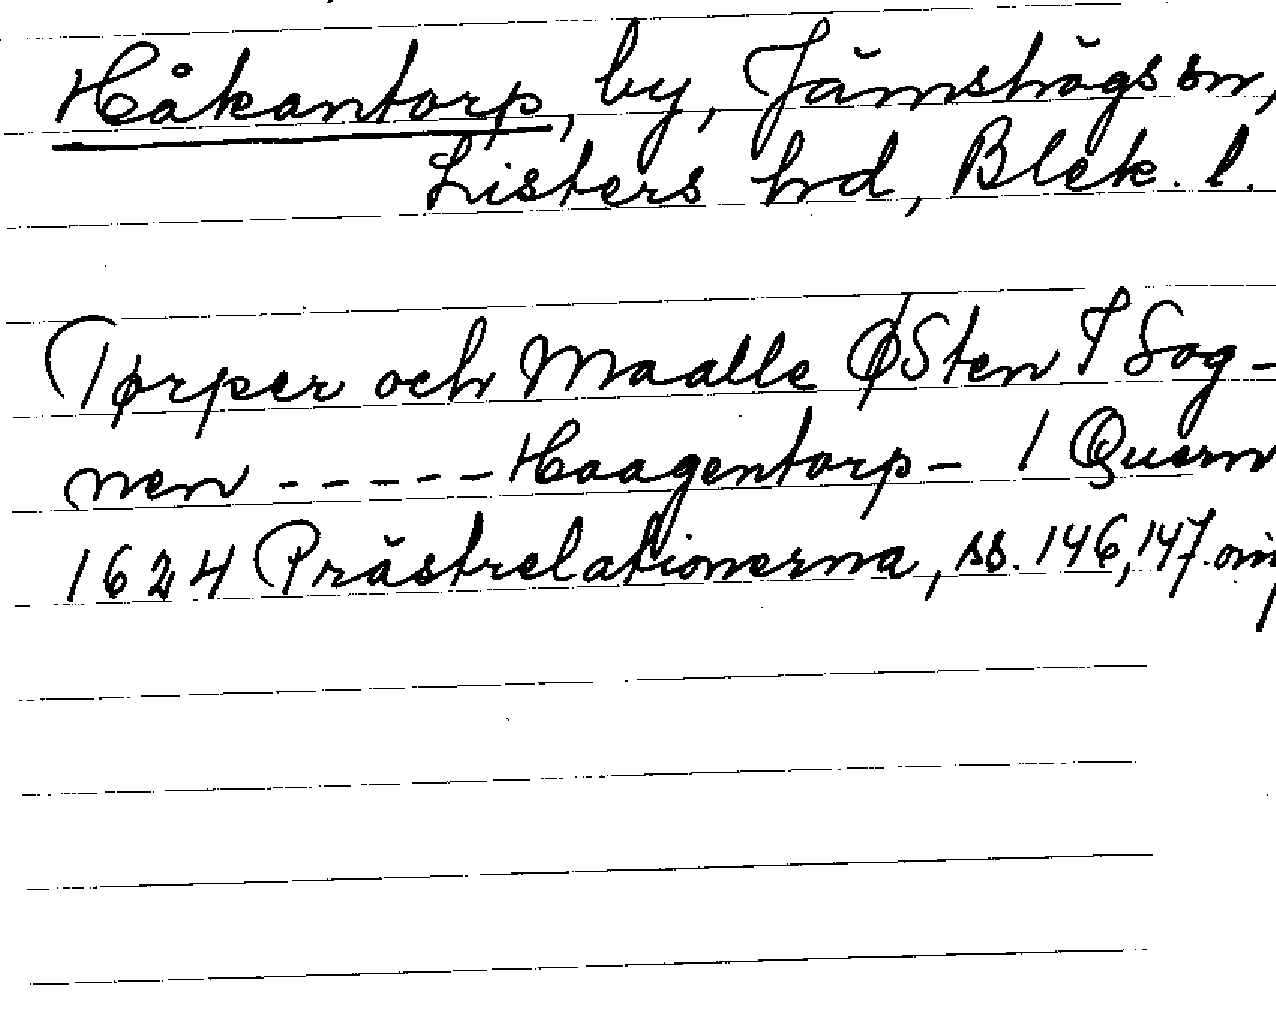 Håkantorp, by, Jämshögs sn,
Listers hd, Blek. l.
Tørper och Maalle ØSten I Sog-
nen ----- Haagentorp - 1 Quern
1624 Prästrelationerna, ss. 146, 147.